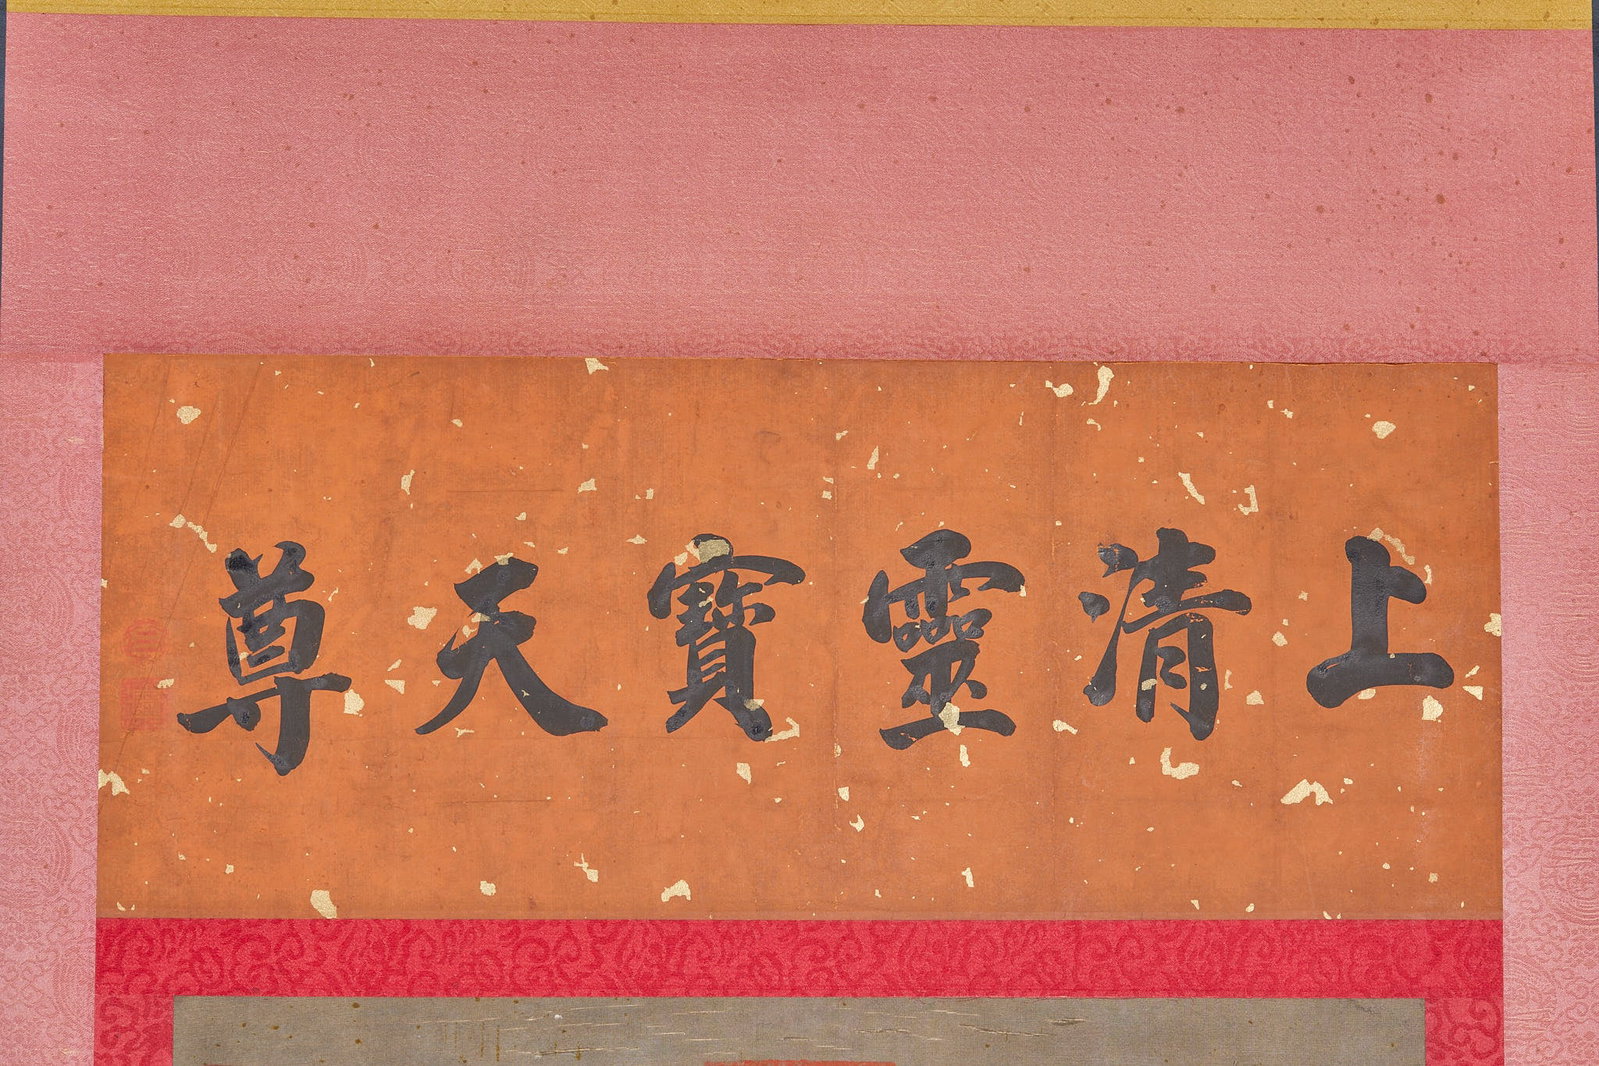 上清靈寶天尊